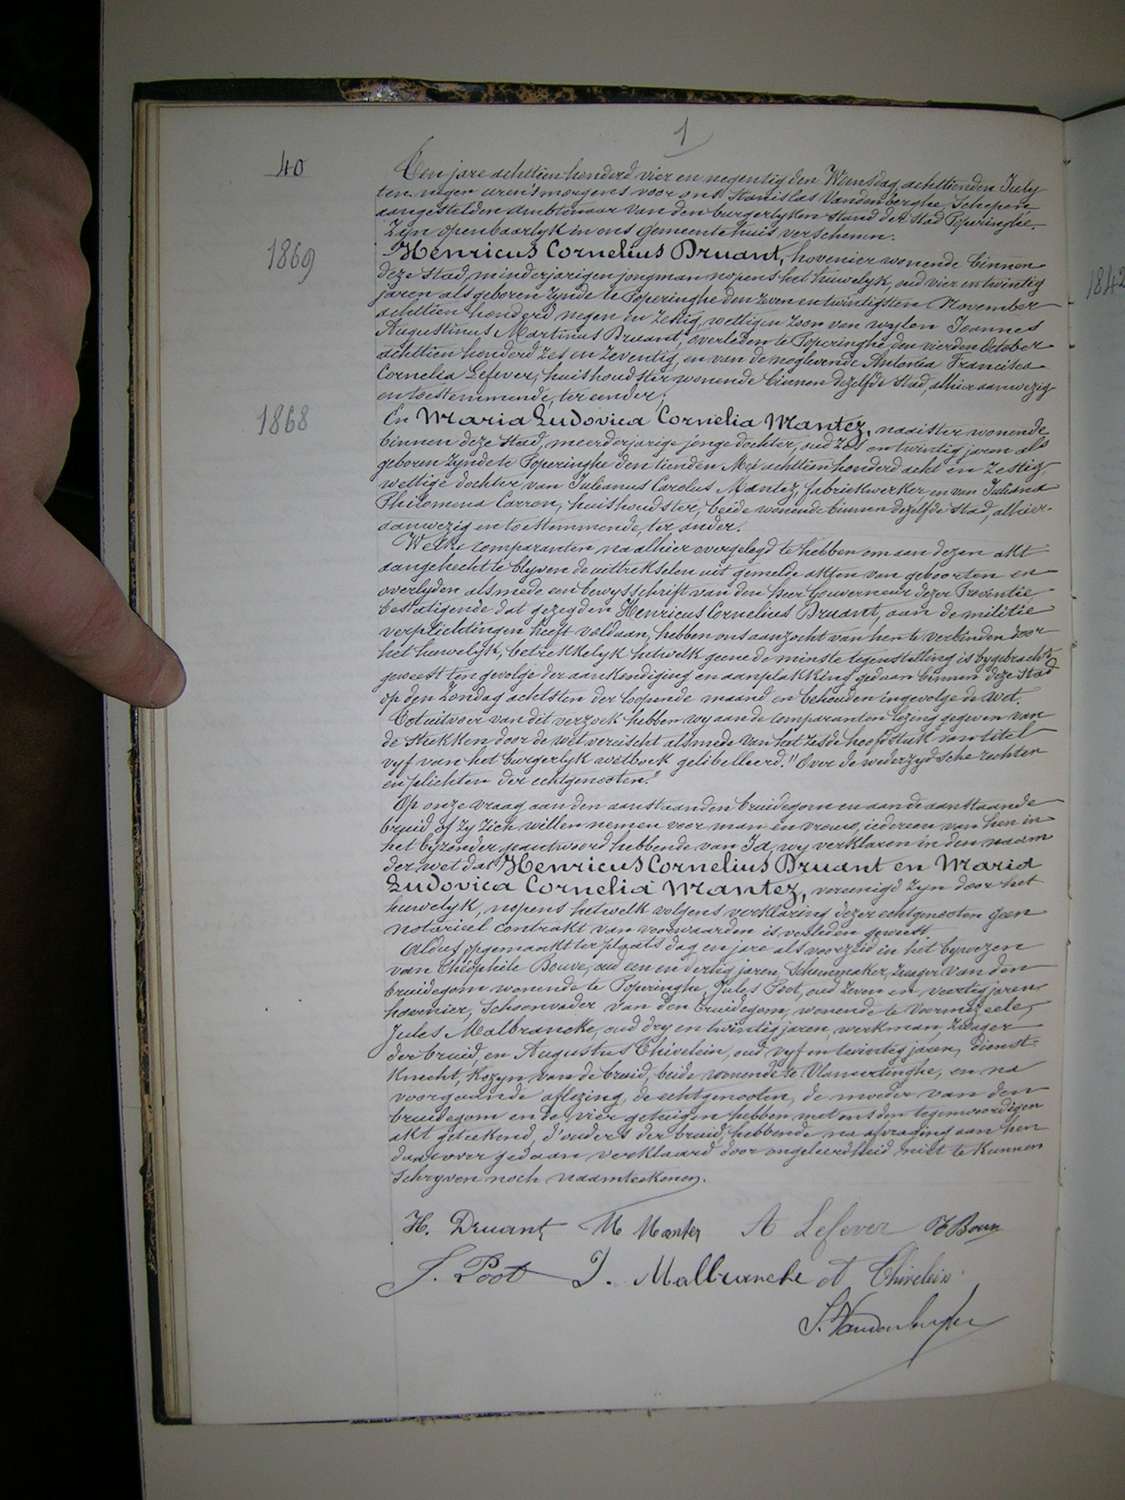 1
40
Ten jare achttien honderd vier en negentig den Wunsdag achttienden July
ten negen uren 's morgens voor ons Stanislas Vandenberghe, Schepen
aangestelden ambtenaar van den burgerlyken stand der stad Poperinghe,
zyn openbaarlyk in ons gemeentehuis verschenen.
1869
Henricus Cornelius Druant, hovenier wonende binnen
deze stad, minderjarigen jongman nopens het huwelyk, oud vier en twintig
jaren als geboren zynde te Poperinghe den zeven en twintigsten November
achttien honderd negen en zestig, wettigen zoon van wylen Joannes
Augustinus Martinus Druant, overleden te Poperinghe, den vierden October
achttien honderd zes en zeventig, en van de noglevende Antonia Francisca
Cornelia Lefever, huishoudster wonende binnen dezelfde stad, alhier aanwezig
en toestemmende, ter eender;
1868
En Maria Ludovica Cornelia Mantez, naaister wonende
binnen deze stad, meerderjarige jonge dochter, oud zes en twintig jaren als
geboren zynde te Poperinghe den tienden Mei achttien honderd acht en zestig,
wettige dochter van Julianus Carolus Mantez, fabriekwerker, en van Juliana
Philomena Carron, huishoudster, beide wonende binnen dezelfde stad, alhier
aanwezig en toestemmende, ter ander.
Welke comparanten na alhier overgelegd te hebben om aan dezen akt
aangehecht te blyven de uittrekselen uit gemelde akten van geboorten en
overlyden alsmede een bewysschrift van den heer Gouverneur dezer Proventie
bestatigende dat gezegden Henricus Cornelius Druant, aan de militie
verplichtingen heeft voldaan, hebben ons aanzocht van hen te verbinden door
het huwelyk, betrekkelyk hetwelk geene de minste tegenstelling is bygebracht
geweest ten gevolge der aankondiging en aanplakking gedaan binnen deze stad
op den Zondag achtsten der loopende maand en behouden ingevolge de wet.
Tot uitvoer van dit verzoek hebben wy aan de comparanten lezing gegeven van
de stukken door de wet vereischt alsmede van het zesde hoofdstuk van titel
vyf van het burgerlyk wetboek gelibelleerd: "Over de wederzydsche rechten
en plichten der echtgenooten."
Op onze vraag aan den aanstaanden bruidegom en aan de aanstaande
bruid of zy zich willen nemen voor man en vrouw, iedereen van hen in
het byzonder geantwoord hebbende van Ja, wy verklaren in den naam
der wet dat Henricus Cornelius Druant en Maria
Ludovica Cornelia Mantez, vereenigd zyn door het
huwelyk, nopens hetwelk volgens verklaring dezer echtgenooten geen
notarieel contrakt van voorwaarden is verleden geweest.
Aldus opgemaakt ter plaats dag en jare als voorzeid in het bywezen
van Theophile Bouve, oud een en dertig jaren, schoenmaker, zwager van den
bruidegom wonende te Poperinghe, Jules Poot, oud zeven en veertig jaren
hovenier, schoonvader van den bruidegom, wonende te Vormezeele,
Jules Malbrancke, oud dry en twintig jaren, werkman, zwager
der bruid, en Augustus Thivelein, oud vyf en twintig jaren, dienst-
knecht, Kozyn van de bruid, beide wonende te Vlamertinghe, en na
voorgaande aflezing, de echtgenooten, de moeder van den
bruidegom en de vier getuigen hebben met ons den tegenwoordigen
akt geteekend, d'ouders der bruid, hebbende na afvraging aan hen
daarover gedaan verklaard door ongeleerdheid niet te kunnen
schryven noch naamteekenen.
H. Druant M Mantez A Lefever Th Bouve
J. Poot J. Malbrancke et Thivelein
S. Vandenberghe
1842